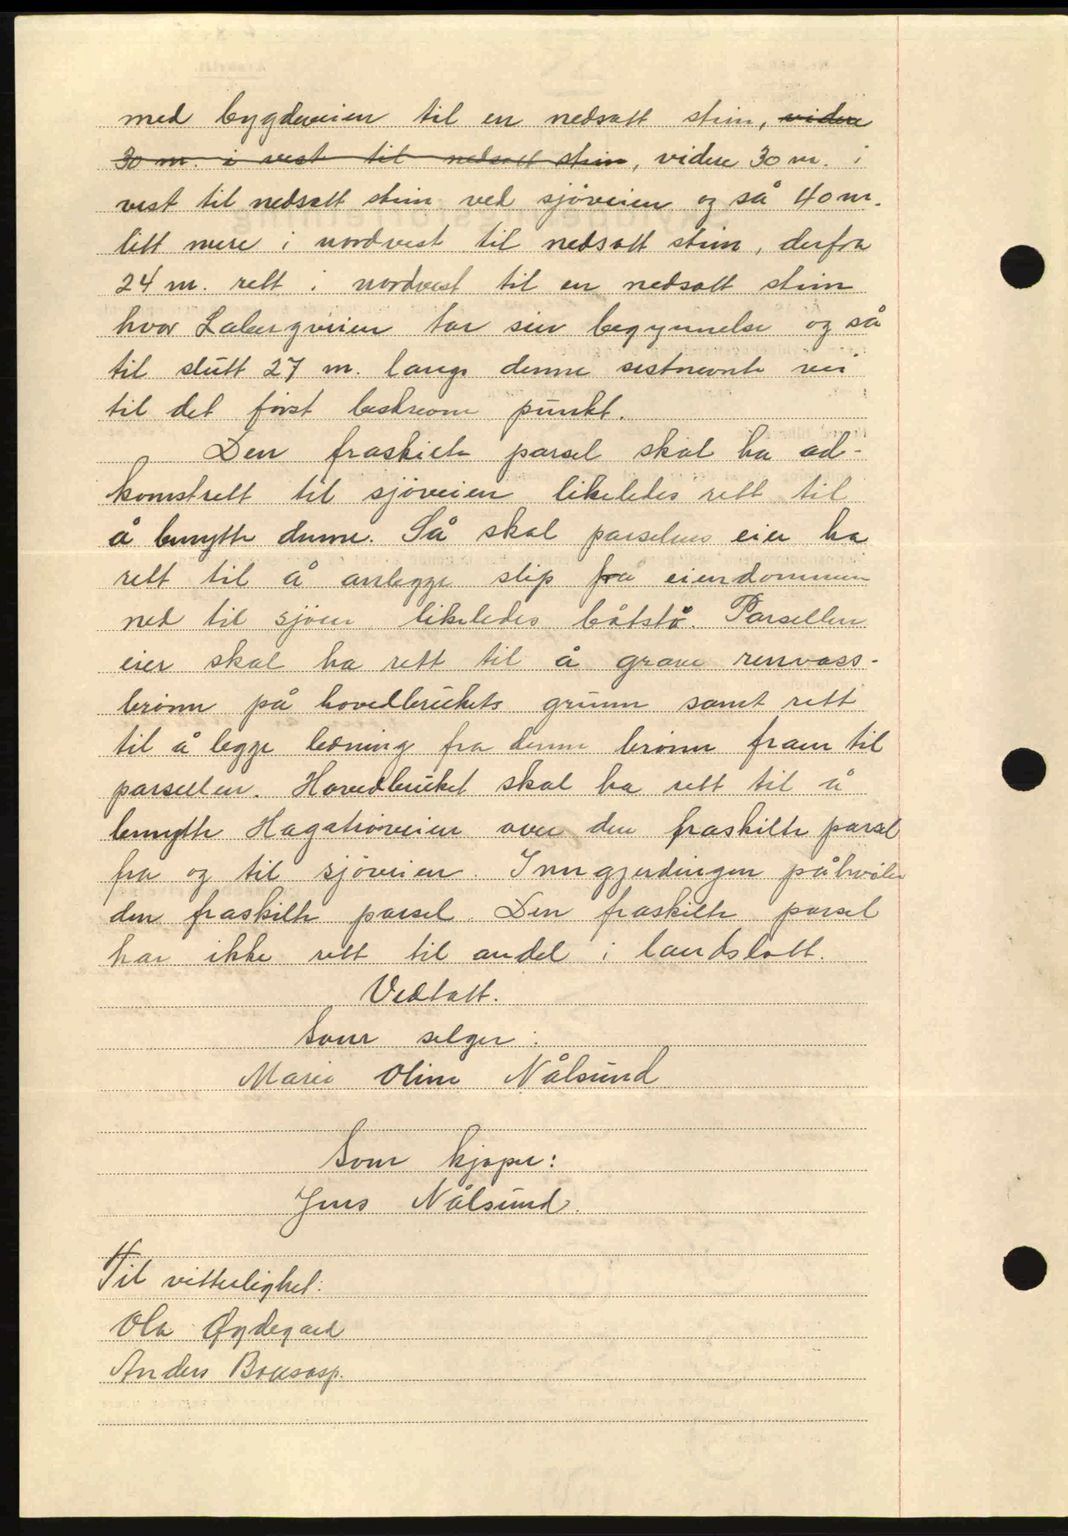 med bygdeveien til en nedsatt stein, videre
30 m. i vest til nedsatt stein, videre 30 m. i
vest til nedsatt stein ved sjöveien og så 40 m.
litt mere i nordvest til nedsatt stein, derfra
24 m. rett i nordvest til en nedsatt stein
hvor Labergveien tar sin begynnelse og så
til slutt 27 m. langs denne sistnevnte vei
til det först beskrevne punkt.
Den fraskilte parsel skal ha ad-
komstrett til sjöveien likeledes rett til
å benytte denne. Så skal parselens eier ha
rett til å anlegge slip fra eiendommen
ned til sjöen likeledes båtstö. Parsellens
eier skal ha rett til å grave renvass-
brönn på hovedbrukets grunn samt rett
til å legge ledning fra denne brönn fram til
parsellen. Hovedbruket skal ha rett til å
benytte Hagatröveien over den fraskilte parsel
fra og til sjöveien. Inngjerdingen påhviler
den fraskilte parsel. Den fraskilte parsel
har ikke rett til andel i landslott.
Vedtatt.
Som selger:
Marie Oline Nålsund
Som kjöper:
Jens Nålsund.
Til vitterlighet:
Ola Øydegard
Anders